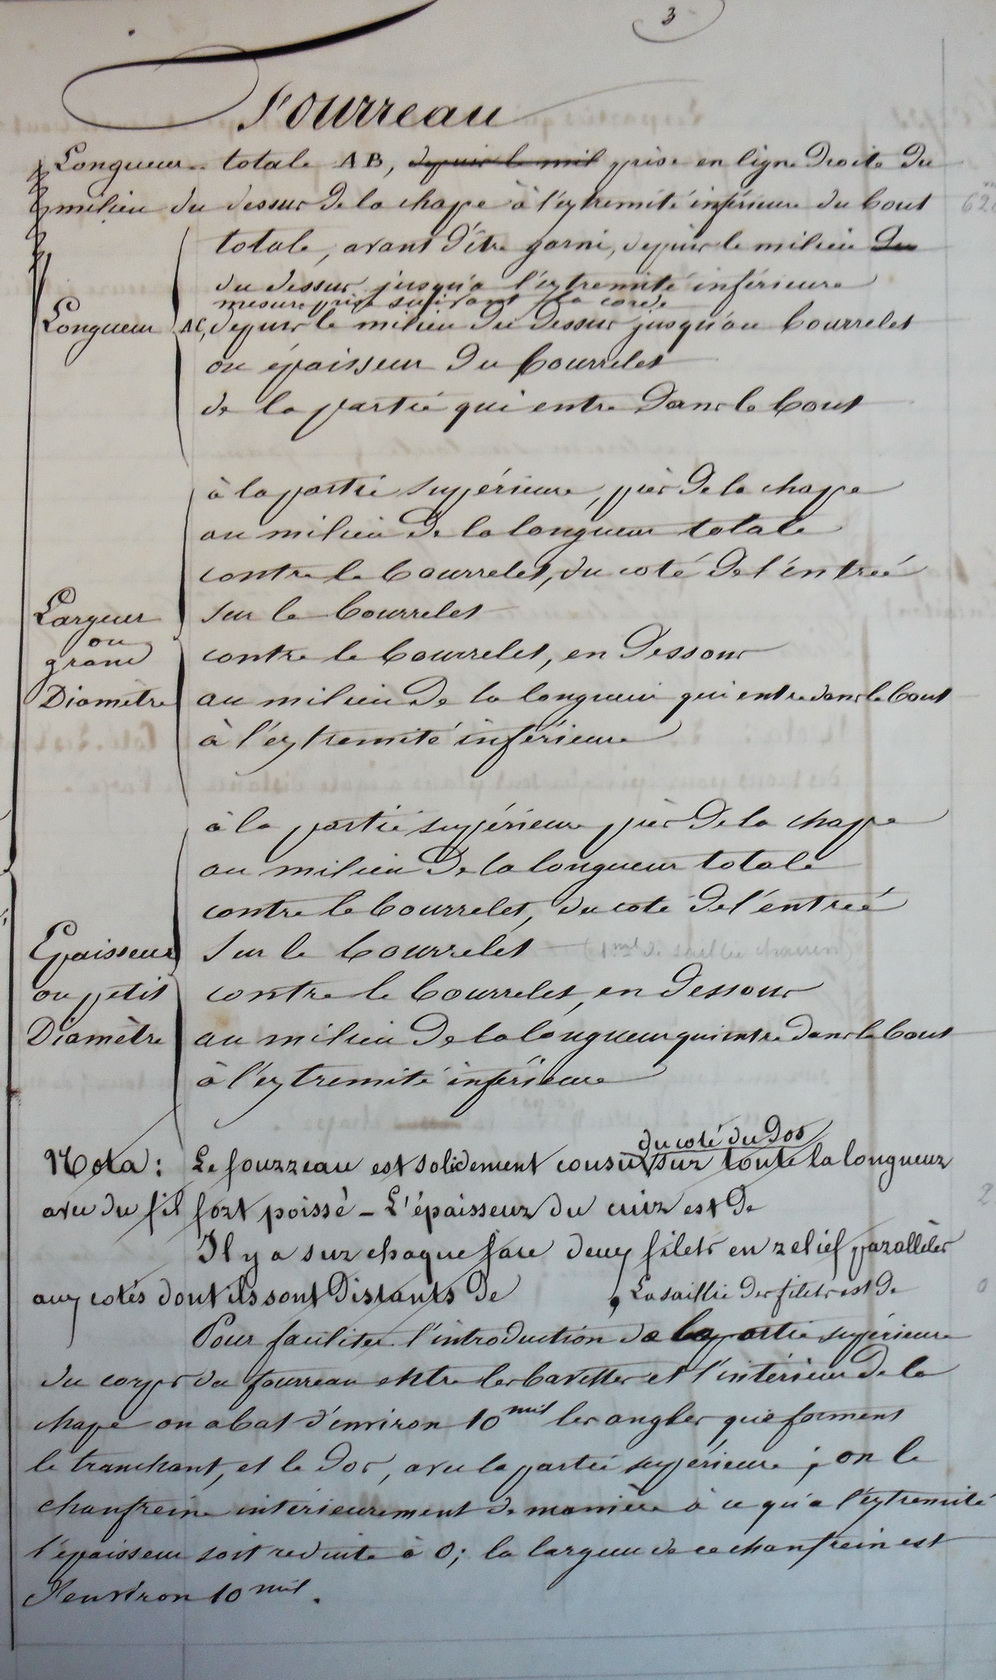 3
Fourreau
Longueur totale AB, depuis le mil prise en ligne droite du
milieu du dessus de la chape à l'extremité inférieure du bout 62
totale, avant d'être garni, depuis le milieu du
du dessus jusqu'à l'extremité inférieure
mesure prise suivant la corde
Longueur AC, depuis le milieu du dessus jusqu'au bourrelet
ou épaisseur du bourrelet
de la partie qui entre dans le bout
à la partie supérieure, près de la chape
au milieu de la longueur totale
contre le bourrelet, du coté de l'entreé
Largeur sur le bourrelet
ou
grand contre le bourrelet, en dessous
Diamètre au milieu de la longueur qui entre dans le bout
à l'extremité inférieure
à la partie supérieure près de la chape
au milieu de la longueur totale
contre le bourrelet, du coté de l'entreé
Epaisseur sur le bourrelet
ou petit contre le bourrelet, en dessous
Diamètre au milieu de la longueur qui entre dans le bout
à l'extremité inférieure
du coté du dos
Nota : Le fourreau est solidement cousu sur toute la longueur
avec du fil fort poissé – L'épaisseur du cuir est de
Il y a sur chaque face deux filets en relief parallèles
aux cotés dont ils sont distants de , La saillie des filets est de
Pour faciliter l'introduction de la partie supérieure
du corps du fourreau entre les bavettes et l'intérieur de la
chape on abat d'environ 10 mil les angles que forment
le tranchant, et le dos, avec la partie supérieure ; on le
chanfreine intérieurement de manière à ce qu'a l'extremité
l'épaisseur soit reduite à 0 ; la largeur de ce chanfrein est
d'environ 10 mil.